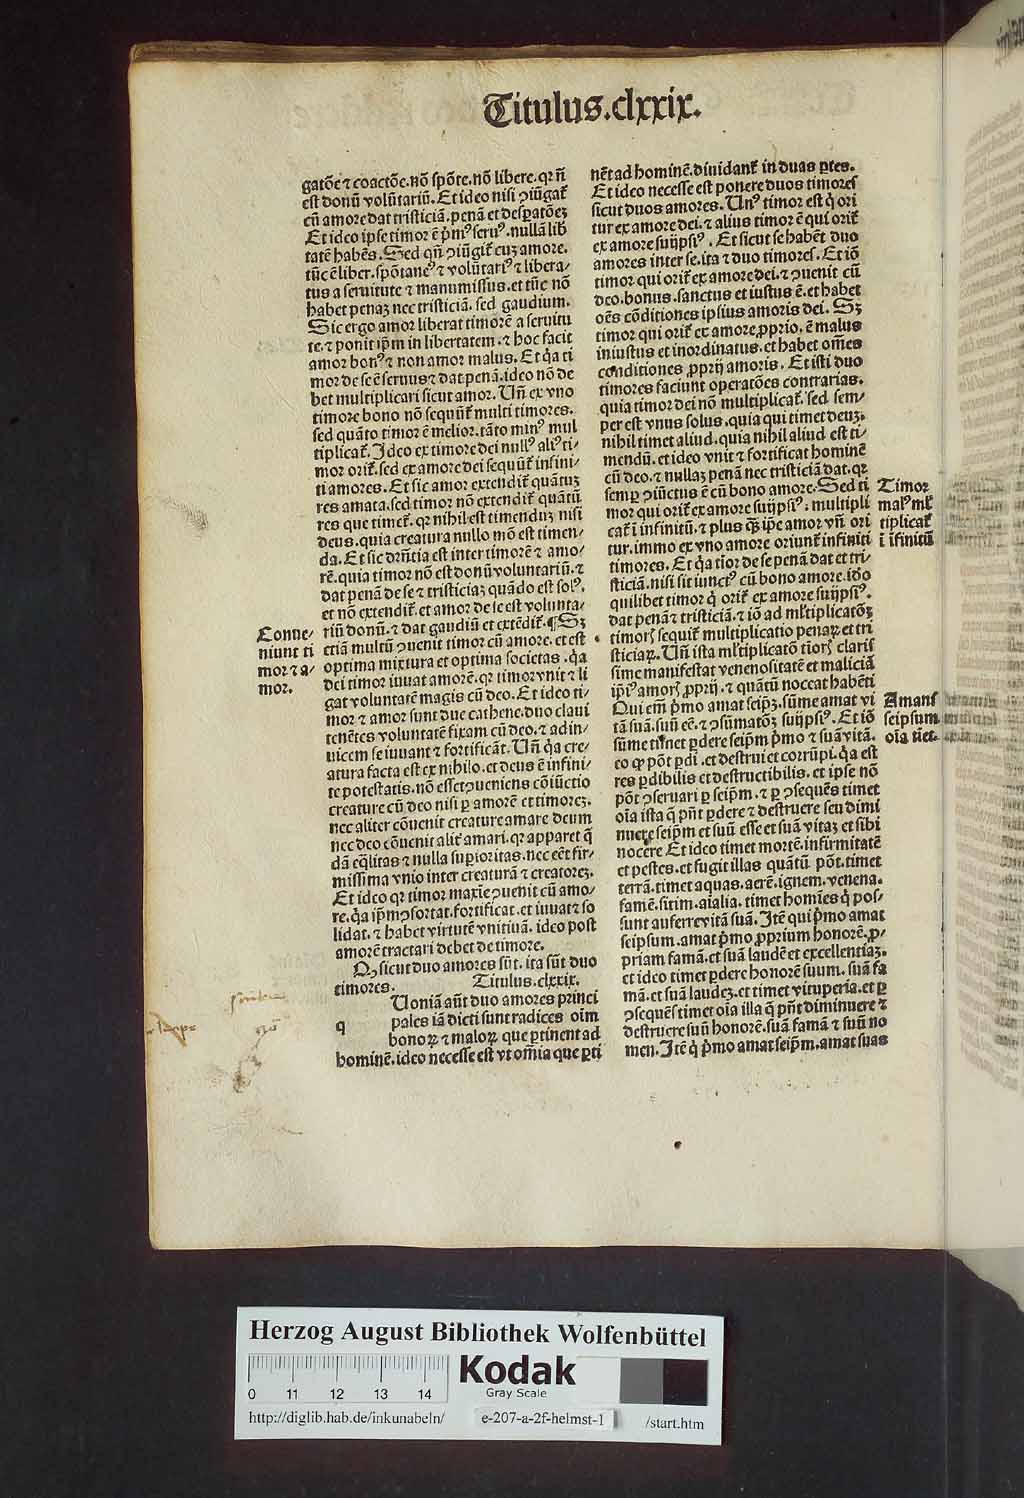 Titulus.clxxix.
gatōe ⁊ coactōe.nō spōte.nō libere.qꝛ n̄
est donū volūtariū. Et ideo nisi ꝯiūgat᷑
cū amore dat tristiciā.penā et desꝑatōeꝫ
Et ideo ipse timor ē p̄mꝰ seruꝰ.nullā lib
tatē habēs. Sed qn̄ ꝯiūgit᷑ cuꝫ amore.
tūc ē liber.spōtaneꝰ ⁊ volūtariꝰ ⁊ libera/
tus a seruitute ⁊ manumissus.et tūc nō
habet penaꝫ nec tristiciā. sed gaudium.
Sic ergo amor liberat timorē a seruitu
te.⁊ ponit ip̄m in libertatem.⁊ hoc facit
amor bonꝰ ⁊ non amor malus. Et q̄a ti
mor de se ē seruus ⁊ dat penā.ideo nō de
bet multiplicari sicut amor. Un̄ ex vno
timore bono nō sequūt᷑ multi timores.
sed quāto timor ē melior.tāto minꝰ mul
tiplicat᷑. Ideo ex timore dei nullꝰ aliꝰ ti/
mor orit᷑.sed ex amore dei sequūt᷑ infini/
ti amores. Et sic amor extendit᷑ quātuꝫ
res amata.sed timor nō extendit᷑ quātū
res que timet᷑.qꝛ nihil est timenduꝫ nisi
deus.quia creatura nullo mō est timen/
da. Et sic dr̄ntia est inter timorē ⁊ amo/
rē.quia timor nō est donū voluntariū.⁊
dat penā de se ⁊ tristiciaꝫ quādo est solꝰ.
et nō extendit᷑.et amor de se est volunta/
riū donū.⁊ dat gaudiū et extēdit᷑.¶Sꝫ
Conue/
niunt ti
mor ⁊ a/
mor.
etiā multū ꝯuenit timor cū amore.et est
optima mixtura et optima societas.q̄a
dei timor iuuat amorē.qꝛ timor vnit ⁊ li
gat voluntatē magis cū deo. Et ideo ti/
mor ⁊ amor sunt due cathene.duo claui
tenētes voluntatē fixam cū deo.⁊ adin/
uicem se iuuant ⁊ fortificāt. Un̄ q̄a cre/
atura facta est ex nihilo.et deus ē infini/
te potestatis.nō esset ꝯueniens cōiūctio
creature cū deo nisi ꝑ amorē et timoreꝫ.
nec aliter cōuenit creature amare deum
nec deo cōuenit alit᷑ amari.qꝛ apparet q̄
dā eq̄litas ⁊ nulla suꝑioritas.nec eēt fir/
missima vnio inter creaturā ⁊ creatoreꝫ.
Et ideo qꝛ timor maxīe ꝯuenit cū amo/
re.q̄a ip̄m ꝯfortat.fortificat.et iuuat ⁊ so
lidat.⁊ habet virtutē vnitiuā. ideo post
amorē tractari debet de timore.
Ꝙ sicut duo amores sūt.ita sūt duo
timores. Titulus.clxxix.
q Uoniā aūt duo amores princi
pales iā dicti sunt radices oīm
bonoꝝ ⁊ maloꝝ que ꝑtinent ad
hominē.ideo necesse est vt om̄ia que ꝑti
nēt ad hominē.diuidant᷑ in duas ꝑtes.
Et ideo necesse est ponere duos timores
sicut duos amores. Unꝰ timor est q̄ ori
tur ex amore dei.⁊ alius timor ē qui orit᷑
ex amore suijpsiꝰ. Et sicut se habēt duo
amores inter se.ita ⁊ duo timores. Et iō
timor qui orit᷑ ex amore dei.⁊ ꝯuenit cū
deo.bonus.sanctus et iustus ē.et habet
oēs cōditiones ipsius amoris dei. Sꝫ
timor qui orit᷑ ex amore ꝓprio.ē malus
iniustus et inordinatus.et habet om̄es
conditiones ꝓprij amoris. Et isti duo
timores faciunt operatōes contrarias.
quia timor dei nō multiplicat᷑.sed sem/
per est vnus solus.quia qui timet deuꝫ.
nihil timet aliud.quia nihil aliud est ti/
mendū.et ideo vnit ⁊ fortificat hominē
cū deo.⁊ nullaꝫ penā nec tristiciā dat.qꝛ
semꝑ ꝯiūctus ē cū bono amore. Sed ti
Timor
malꝰ ml̄
tiplicat᷑
ī īfinitū
mor qui orit᷑ ex amore suijpsiꝰ: multipli
cat᷑ ī infinitū.⁊ plus q̄ꝫ ip̄e amor vn̄ ori
tur.immo ex vno amore oriunt᷑ infiniti
timores. Et q̄a tīor de se penā dat et tri/
sticiā.nisi sit iunctꝰ cū bono amore.idō
quilibet timor q̄ orit᷑ ex amore suijpsiꝰ.
dat penā ⁊ tristiciā.⁊ iō ad ml̄tiplicatōꝫ
timorꝝ sequit᷑ multiplicatio penaꝝ et tri
sticiaꝝ. Un̄ ista ml̄tiplicatō tīorꝝ claris
sime manifestat venenositatē et maliciā
ip̄iꝰ amorꝭ ꝓprij.⁊ quātū noceat habēti
Amans
seipsum
oīa tīet.
Qui em̄ p̄mo amat seip̄ꝫ.sūme amat vi
tā suā.suū eē.⁊ ꝯsūmatōꝫ suijpsiꝰ. Et iō
sūme timet ꝑdere seip̄m p̄mo ⁊ suā vitā.
eo ꝙ pōt ꝑdi.et destrui et corrūpi.q̄a est
res ꝑdibilis et destructibilis.et ipse nō
pōt ꝯseruari ꝑ seip̄m.⁊ ꝑ ꝯsequēs timet
oīa ista q̄ pn̄t ꝑdere ⁊ destruere seu dimi
nuere seip̄m et suū esse et suā vitaꝫ et sibi
nocere Et ideo timet mortē.infirmitatē
et pestes.et fugit illas quātū pōt.timet
terrā.timet aquas.aerē.ignem.venena.
famē.sitim.aīalia.timet homīes q̄ pos/
sunt auferre vitā suā. Itē qui p̄mo amat
seipsum.amat p̄mo ꝓprium honorē.ꝓ/
priam famā.et suā laudē et excellentiaꝫ.
et ideo timet ꝑdere honorē suum. suā fa
mā.et suā laudeꝫ.et timet vituperia.et ꝑ
ꝯsequēs timet oīa illa q̄ pn̄t diminuere ⁊
destruere suū honorē.suā famā ⁊ suū no
men. Itē q̄ p̄mo amat seip̄m.amat suas
Herzog August Bibliothek Wolfenbüttel
0 11 12 13 14
Kodak
Gray Scale
http://diglib.hab.de/inkunabeln/ e-207-a-2f-helmst-1 /start.htm